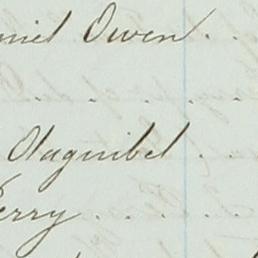 niel Owen . .
Olaguibel . .
Perry . . . .